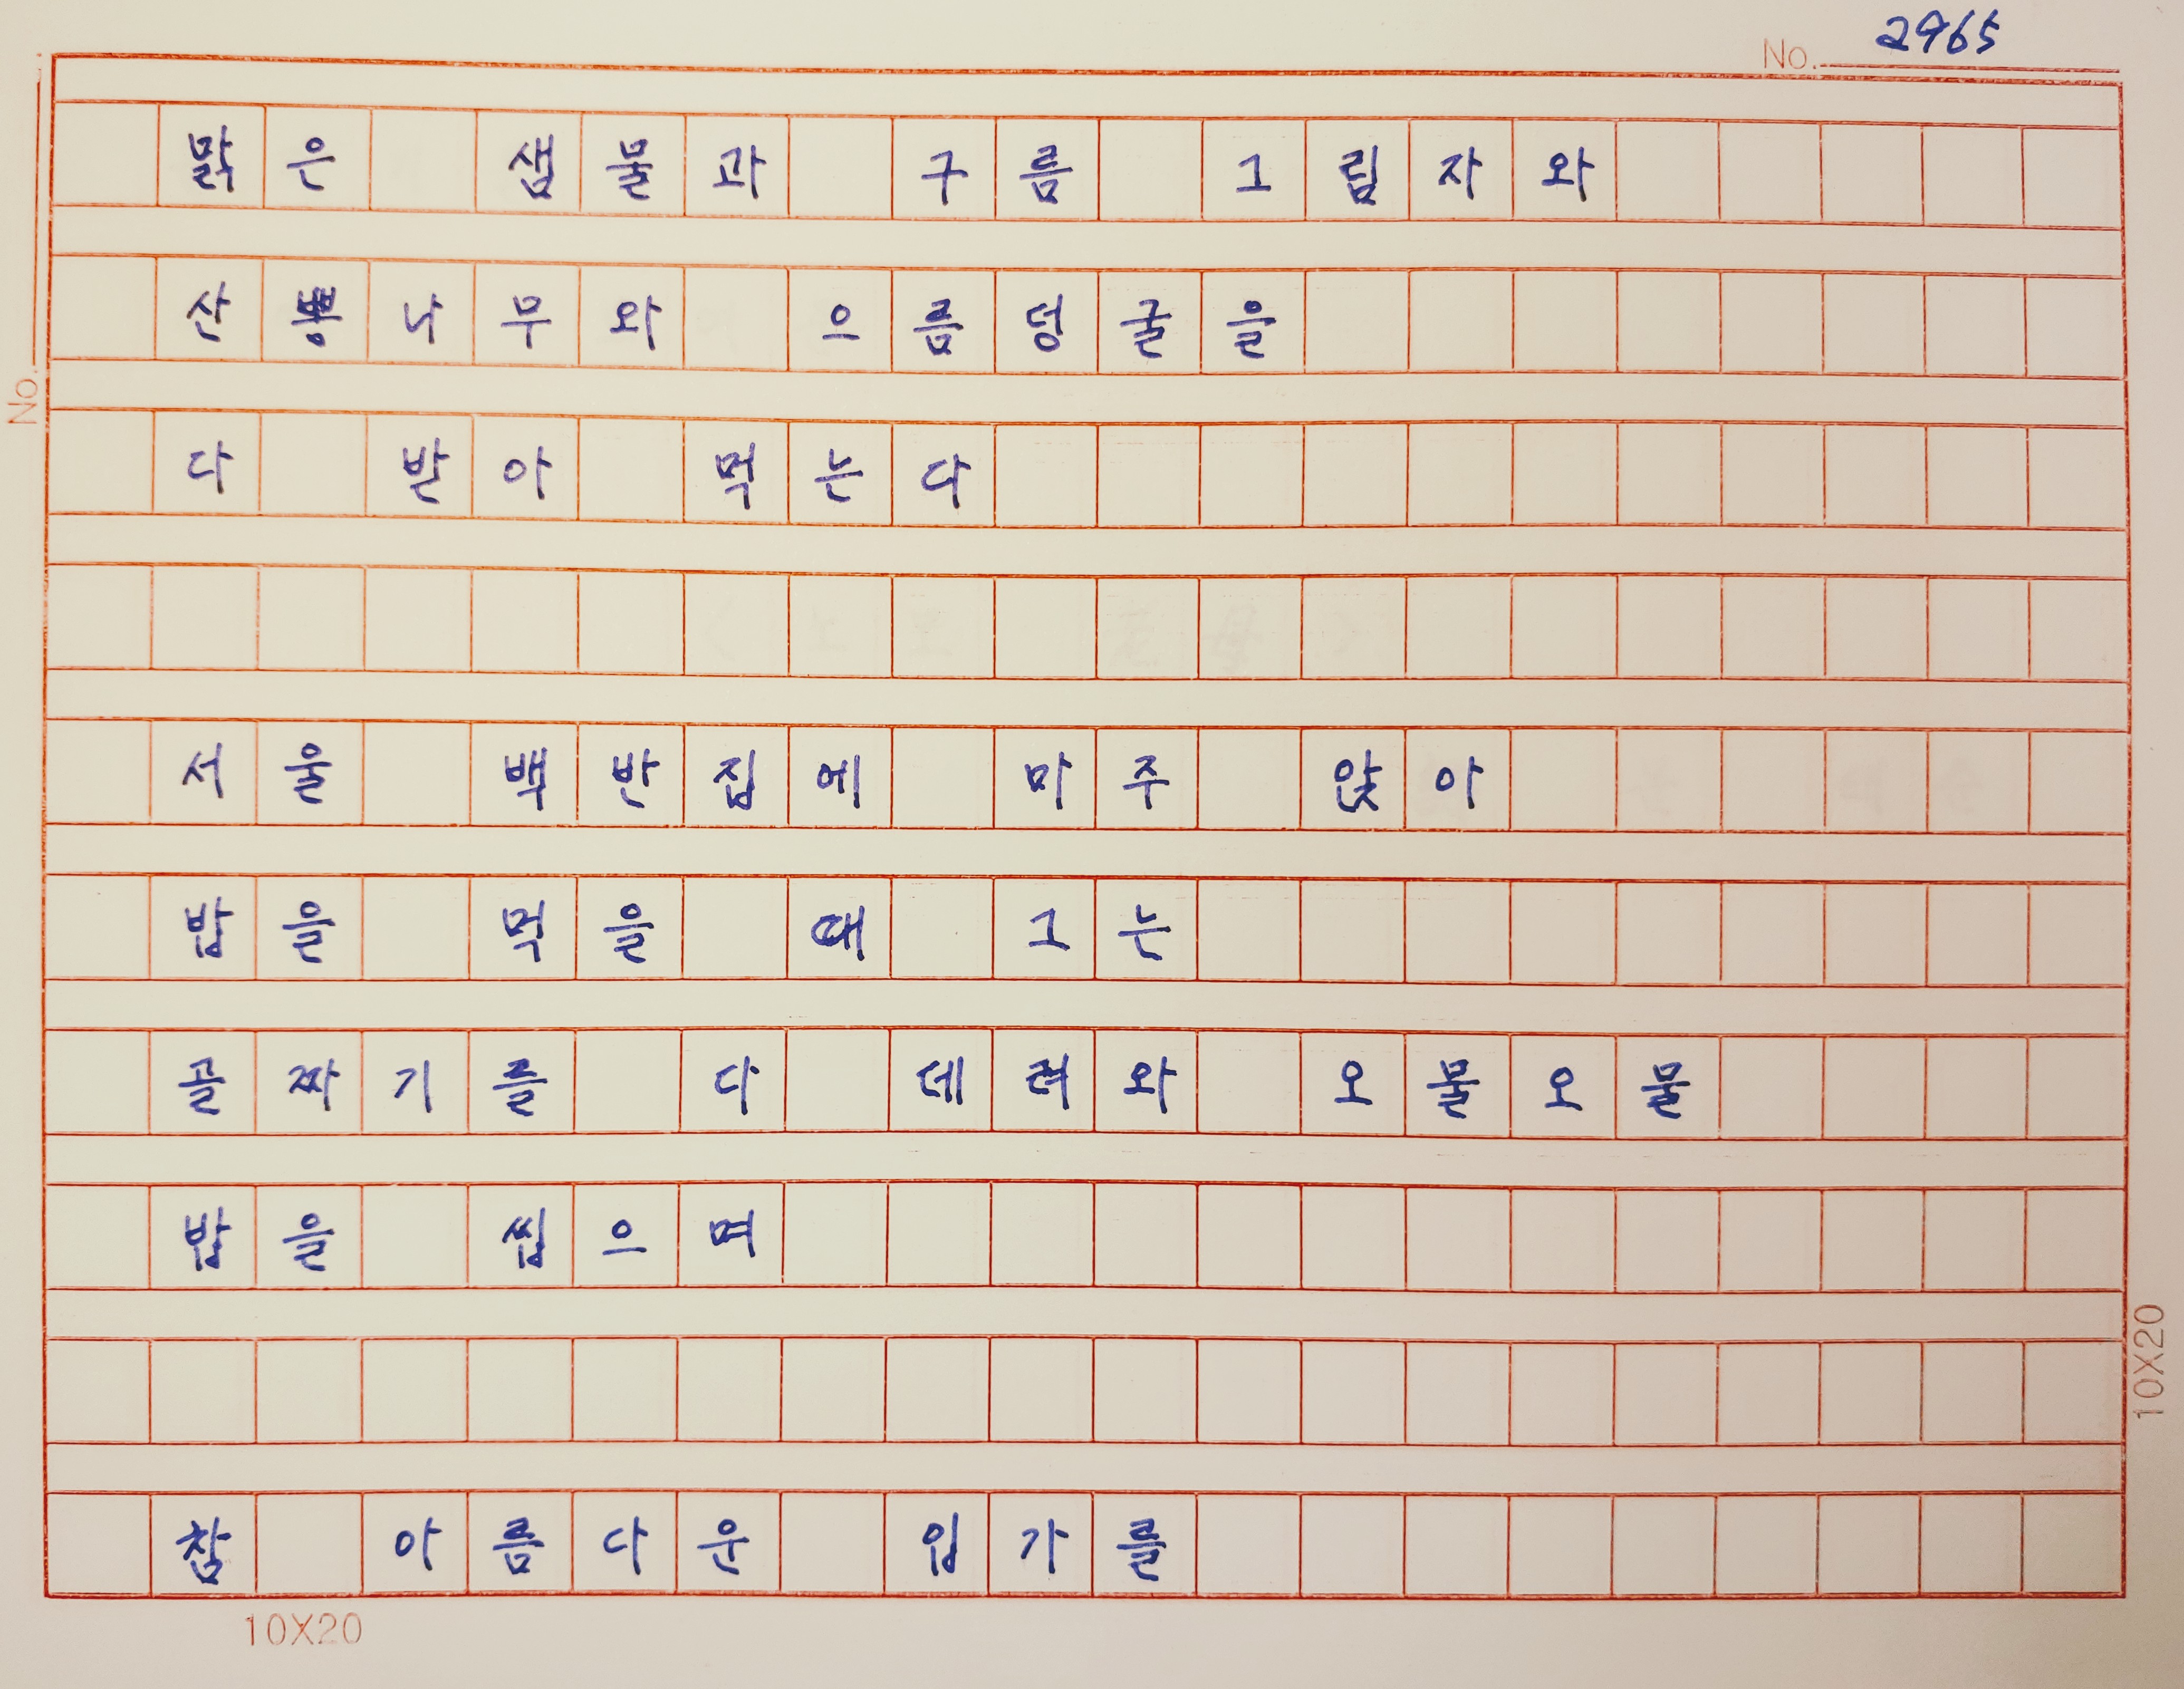 No. 2965
맑은 샘물과 구름 그림자와
산뽕나무와 으름덩굴을
No.
다 받아 먹는다
서울 백반집에 마주 앉아
밥을 먹을 때 그는
골짜기를 다 데려와 오물오물
밥을 씹으며
참 아름다운 입가를
10X20
10X20